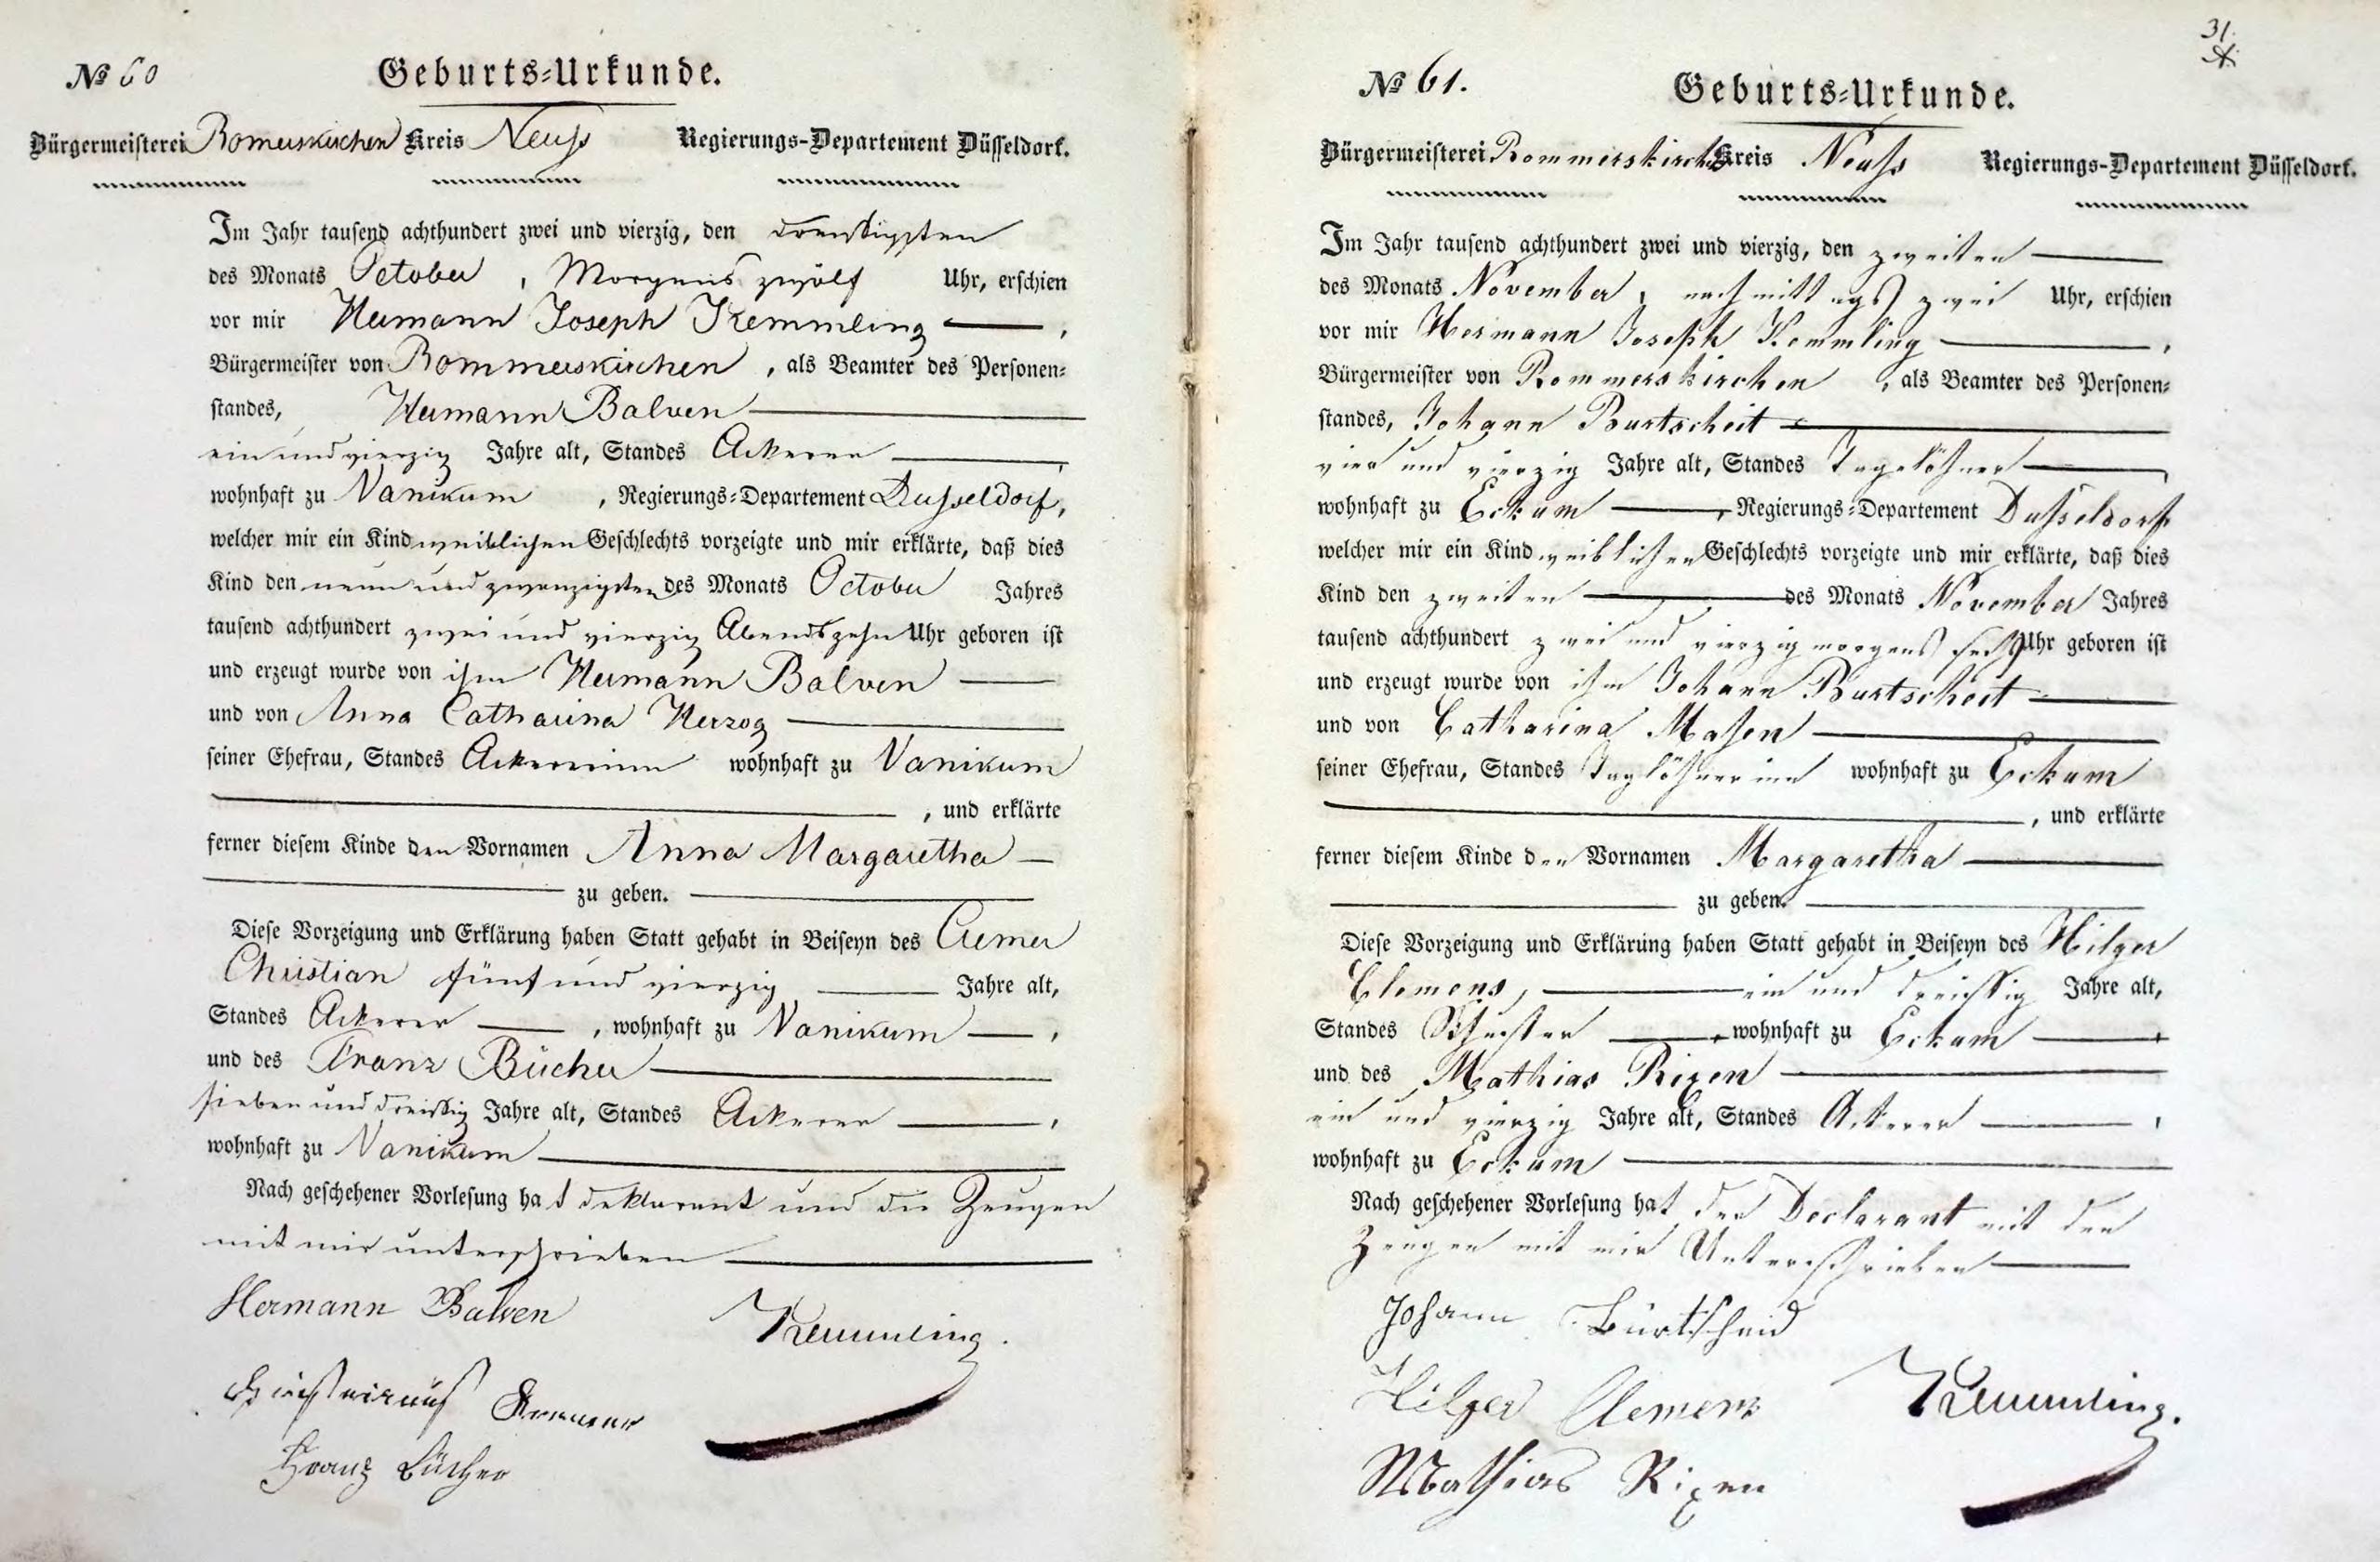 № 60
Geburts-Urkunde.
Bürgermeisterei Romerskirchen Kreis Neuss Regierungs-Departement Düsseldorf.
Im Jahr tausend achthundert zwei und vierzig, den dreissigsten
des Monats October, Morgens zwölf Uhr, erschien
vor mir Hermann Joseph Kemmling,
Bürgermeister von Rommerskirchen, als Beamter des Personen-
standes, Hermann Balven
ein und vierzig Jahre alt, Standes Ackerer,
wohnhaft zu Vanikum, Regierungs-Departement Dusseldorf,
welcher mir ein Kind weiblichen Geschlechts vorzeigte und mir erklärte, daß dies
Kind den neun und zwanzigsten des Monats October Jahres
tausend achthundert zwei und vierzig Abends zehn Uhr geboren ist
und erzeugt wurde von ihm Hermann Balven
und von Anna Catharina Herzog
seiner Ehefrau, Standes Ackererinn wohnhaft zu Vanikum
, und erklärte
ferner diesem Kinde den Vornamen Anna Margaretha
zu geben.
Diese Vorzeigung und Erklärung haben Statt gehabt in Beiseyn des Cremer
Christian fünf und vierzig Jahre alt,
Standes Ackerer, wohnhaft zu Vanikum,
und des Franz Bücher
sieben und dreissig Jahre alt, Standes Ackerer,
wohnhaft zu Vanikum
Nach geschehener Vorlesung hat deklarant und die Zeugen
mit mir unterschrieben
Hermann Balven
Kemmling.
Franz Bücher
31.
№ 61.
Geburts-Urkunde.
Bürgermeisterei Rommerskirchen Kreis Neuss Regierungs-Departement Düsseldorf.
Im Jahr tausend achthundert zwei und vierzig, den zweiten
des Monats November, nachmittags zwei Uhr, erschien
vor mir Hermann Joseph Kemmling,
Bürgermeister von Rommerskirchen, als Beamter des Personen-
standes, Johann Burtscheit
vier und vierzig Jahre alt, Standes Tagelöhner,
wohnhaft zu Eckum, Regierungs-Departement Dusseldorf
welcher mir ein Kind weiblichen Geschlechts vorzeigte und mir erklärte, daß dies
Kind den zweiten des Monats November Jahres
tausend achthundert zwei und vierzig morgens sechs Uhr geboren ist
und erzeugt wurde von ihm Johann Burtscheit
und von Catharina Masen
seiner Ehefrau, Standes Taglöhnerinn wohnhaft zu Eckum
, und erklärte
ferner diesem Kinde den Vornamen Margaretha
zu geben.
Diese Vorzeigung und Erklärung haben Statt gehabt in Beiseyn des Hilger
Clemens, ein und dreissig Jahre alt,
Standes Schuster, wohnhaft zu Eckum,
und des Mathias Rixen
ein und vierzig Jahre alt, Standes Ackerer,
wohnhaft zu Eckum
Nach geschehener Vorlesung hat der Declarant mit den
Zeugen mit mir Unterschrieben
Johann Burtscheid
Hilger Clemens
Kemmling.
Mathias Rixen